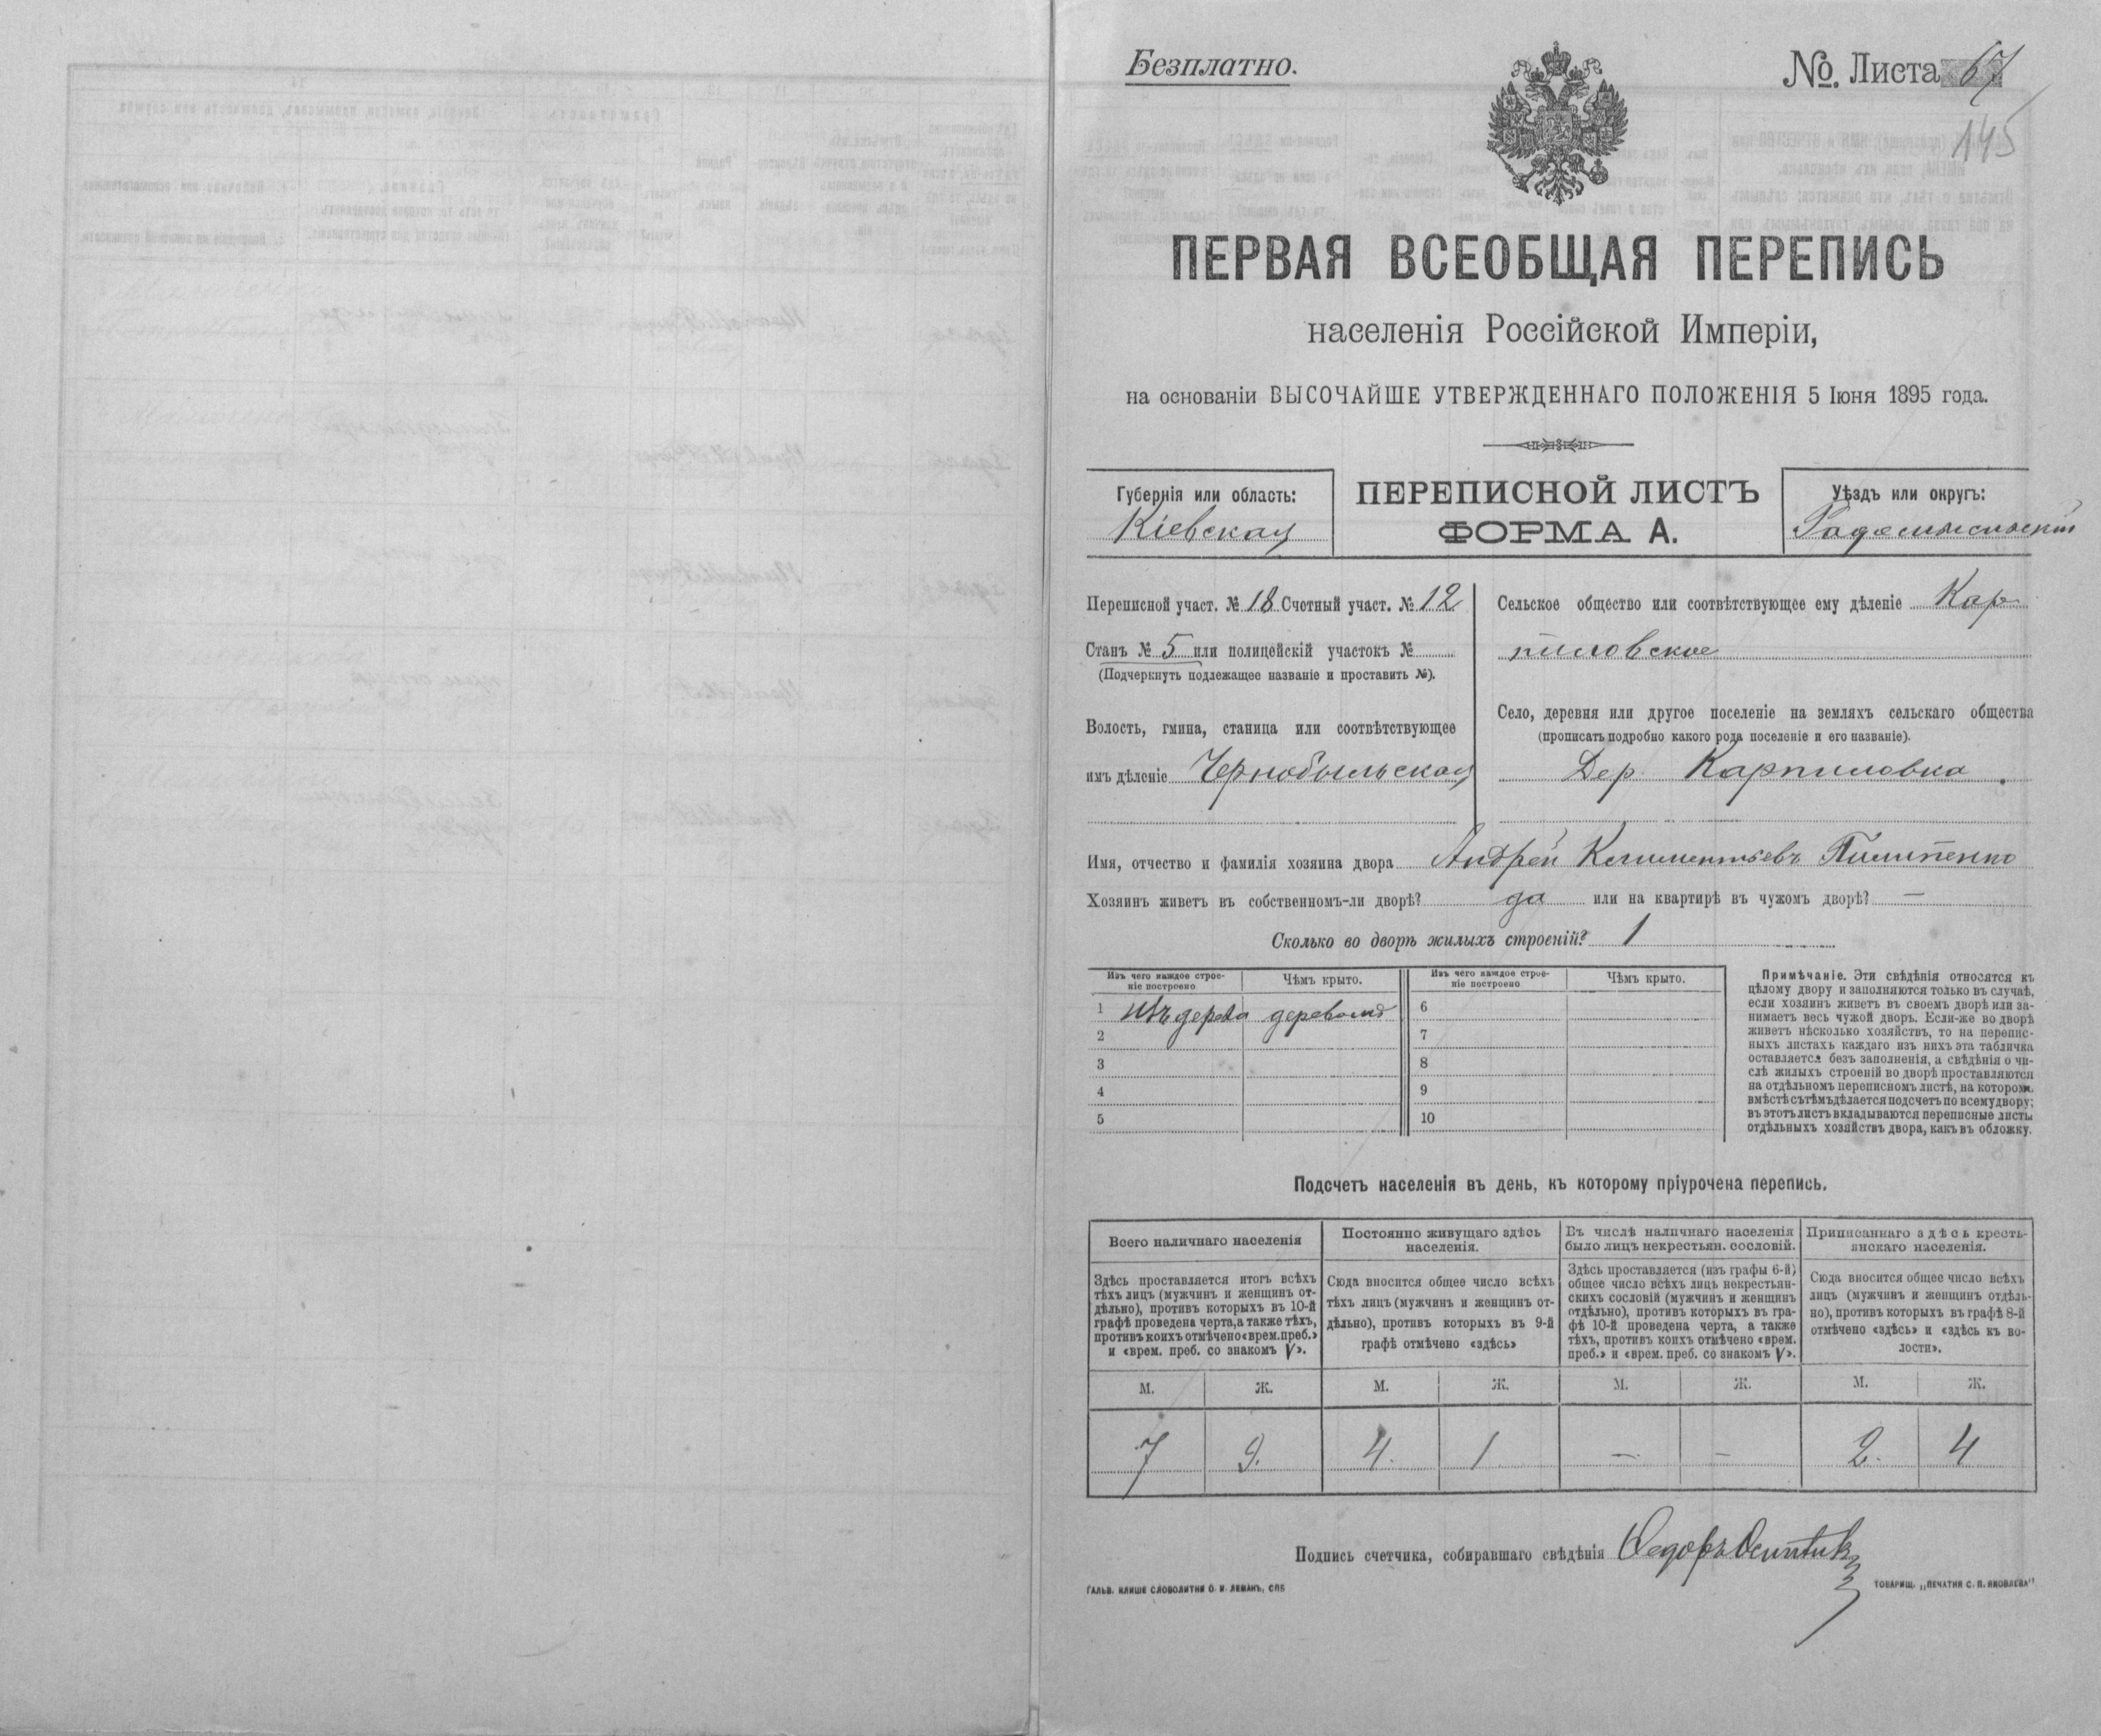 Безплатно.
№. Листа 67
145
ПЕРВАЯ ВСЕОБЩАЯ ПЕРЕПИСЬ
населенія Россійской Имперіи,
на основаніи ВЫСОЧАЙШЕ УТВЕРЖДЕННАГО ПОЛОЖЕНІЯ 5 Іюня 1895 года.
Губернія или область:
Кіевская
ПЕРЕПИСНОЙ ЛИСТЪ
ФОРМА А.
Уѣздъ или округъ:
Радомысльскій
Переписной участ. № 18 Счетный участ. № 12
Станъ № 5 или полицейскій участокъ №
(Подчеркнуть подлежащее названіе и проставить №).
Волость, гмина, станица или соотвѣтствующее
имъ дѣленіе Чернобыльская
Сельское общество или соотвѣтствующее ему дѣленіе Кар
пиловское
Село, деревня или другое поселеніе на земляхъ сельскаго общества
(прописать подробно какого рода поселеніе и его названіе).
Дер. Карпиловка.
Имя, отчество и фамилія хозяина двора Андрей Климентьевъ Пилипенко
Хозяинъ живетъ въ собственномъ-ли дворѣ? да или на квартирѣ въ чужомъ дворѣ? —
Сколько во дворѣ жилыхъ строеній? 1
Изъ чего каждое строе-
ніе построено
Чѣмъ крыто.
Изъ чего каждое строе-
ніе построено
Чѣмъ крыто.
1 изъ дерева деревомъ
2
3
4
5
6
7
8
9
10
Примѣчаніе. Эти свѣдѣнія относятся къ
цѣлому двору и заполняются только въ случаѣ,
если хозяинъ живетъ въ своемъ дворѣ или за-
нимаетъ весь чужой дворъ. Если-же во дворѣ
живетъ нѣсколько хозяйствъ, то на перепис-
ныхъ листахъ каждаго изъ нихъ эта табличка
оставляется безъ заполненія, а свѣдѣнія о чи-
слѣ жилыхъ строеній во дворѣ проставляются
на отдѣльномъ переписномъ листѣ, на которомъ
вмѣстѣ съ тѣмъ дѣлается подсчетъ по всему двору;
въ этотъ листъ вкладываются переписные листы
отдѣльныхъ хозяйствъ двора, какъ въ обложку.
Подсчетъ населенія въ день, къ которому пріурочена перепись.
Всего наличнаго населенія
Постоянно живущаго здѣсь
населенія.
Въ числѣ наличнаго населенія
было лицъ некрестьян. сословій.
Приписаннаго здѣсь кресть-
янскаго населенія.
Здѣсь проставляется итогъ всѣхъ
тѣхъ лицъ (мужчинъ и женщинъ от-
дѣльно), противъ которыхъ въ 10-й
графѣ проведена черта, а также тѣхъ,
противъ коихъ отмѣчено «врем. преб.»
и «врем. преб. со знакомъ V».
Сюда вносится общее число всѣхъ
тѣхъ лицъ (мужчинъ и женщинъ от-
дѣльно), противъ которыхъ въ 9-й
графѣ отмѣчено «здѣсь»
Здѣсь проставляется (изъ графы 6-й)
общее число всѣхъ лицъ некрестьян-
скихъ сословій (мужчинъ и женщинъ
отдѣльно), противъ которыхъ въ гра-
фѣ 10-й проведена черта, а также
тѣхъ, противъ коихъ отмѣчено «врем.
преб.» и «врем. преб. со знакомъ V».
Сюда вносится общее число всѣхъ
лицъ (мужчинъ и женщинъ отдѣль-
но), противъ которыхъ въ графѣ 8-й
отмѣчено «здѣсь» и «здѣсь къ во-
лости».
М. Ж. М. Ж. М. Ж. М. Ж.
7 9. 4. 1 — — 2. 4
Подпись счетчика, собиравшаго свѣдѣнія Федоръ
ГАЛЬВ. КЛИШЕ СЛОВОЛИТНИ О. И. ЛЕМАНЪ, СПБ
ТОВАРИЩ. „ПЕЧАТНЯ С. П. ЯКОВЛЕВА"